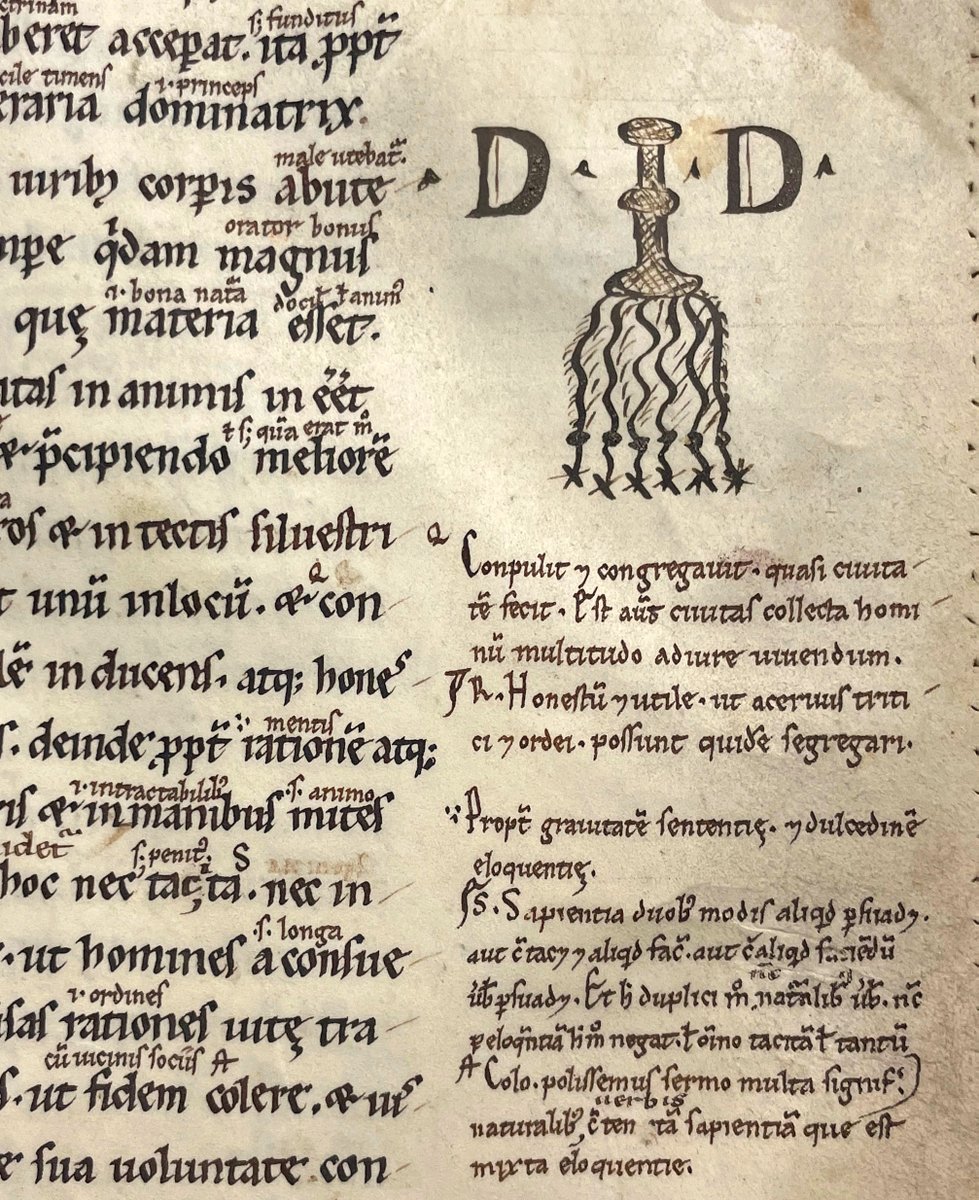 ctrinam
s; funditus
beret accepat. ita ꝓpt̃
cile timens
.i. princeps
eraria dominatrix.
male utebat̃.
uirib; corꝑis abute
orator bonus
nipe q̇dam magnus
.i. bona nat̃a docił ł anim᷒
quę materia esset.
itas in animis in ee᷑t
ł s; qua erat m̊
p̃cipiendo meliorē
ros & in tectis siluestri
t unū in locū. & con
lē inducens. atq; hones
mentis
s. deinde ꝓpt̃ rationē atq;
.i. intractabilib; .s. animo
ris & inmanibus mites
idet̃
s; penit᷒. S
hoc nec tacita. nec in
.s. longa
. ut homines a consue
.i. ordines
isas rationes uitę tra
cū uicinis sociis A
s. ut fidem colere. & ius
sua uoluntate con
.D. .D.
Q Conpulit ⁊ congregauit. quasi ciuita
tē fecit. Est aut̃ ciuitas collecta homi
nū multitudo ad iure uiuendum.
R. Honestū ⁊ utile. ut aceruus triti
ci ⁊ ordei. possunt quidē segregari.
Propt̃ grauitatē sententię. ⁊ dulcedinē
eloquentię.
S. Sapientia duob; modis aliqd ꝑsuad⁊.
aut c̃ tac⁊ ⁊ aliqd fac̃. aut c̃ aliqd faciēdū
ũb ꝑsuad⁊. Et h̄ duplici m̊ nat̃alib; ũb. nc̄
ꝑ eloqñtiā h̄ m̊ negat. ł oīno tacitā ł tantū
A Colo. polissemus sermo multa signif̃.
uerbis
naturalib; c̃ten tā sapientiā que est
mixta eloquentie.